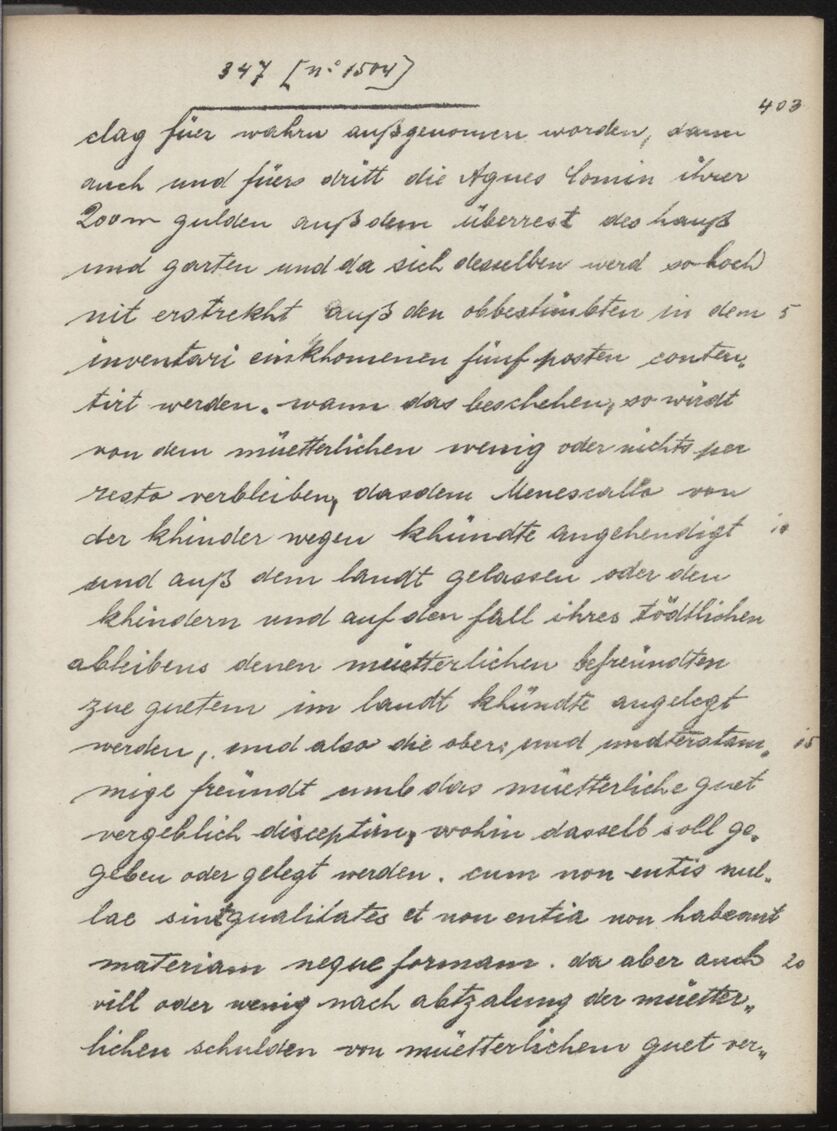 347 [n: 1504]
403
clag füer wahru außgenomen worden, dann
auch und füers dritt die Agnes Comin ihrer
200 m gulden auß dem überrest des hauß
und garten und da sich desselben werd so hoch
nit erstrekht auß den obbestimbten in dem 5
inventari einkhomenen fünf posten conten„
tirt werden. wann das beschehen, so wirdt
von dem müetterlichen wenig oder nichts per
resto verbleiben, das dem Menescallo von
der khinder wegen khündte angehendigt 10
und auß dem landt gelassen oder den
khindern und auf den fall ihres tödtlichen
ableibens denen müetterlichen befreündten
zue guetem im landt khündte angelegt
werden, und also die ober: und undterstam„ 15
mige freündt umb das müetterliche guet
vergeblich disceptirn, wohin dasselb soll ge„
geben oder gelegt werden. cum non entis nul„
lae sint qualitates et non entia non habeant
materiam neque formam. da aber auch 20
vill oder wenig nach abtzalung der müetter„
lichen schulden von müetterlichem guet ver„